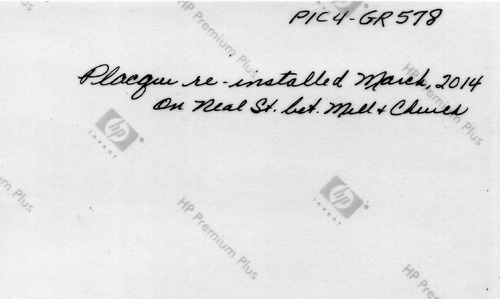 PIC4-GR578
HP Premium Plus
HP Premium Plus
Placque re-installed March, 2014
On Neal St. bet. Mill & Church
hp
invent
HP Premium Plus
hp
invent
m Plus
HP Premium Plus
HP Premium